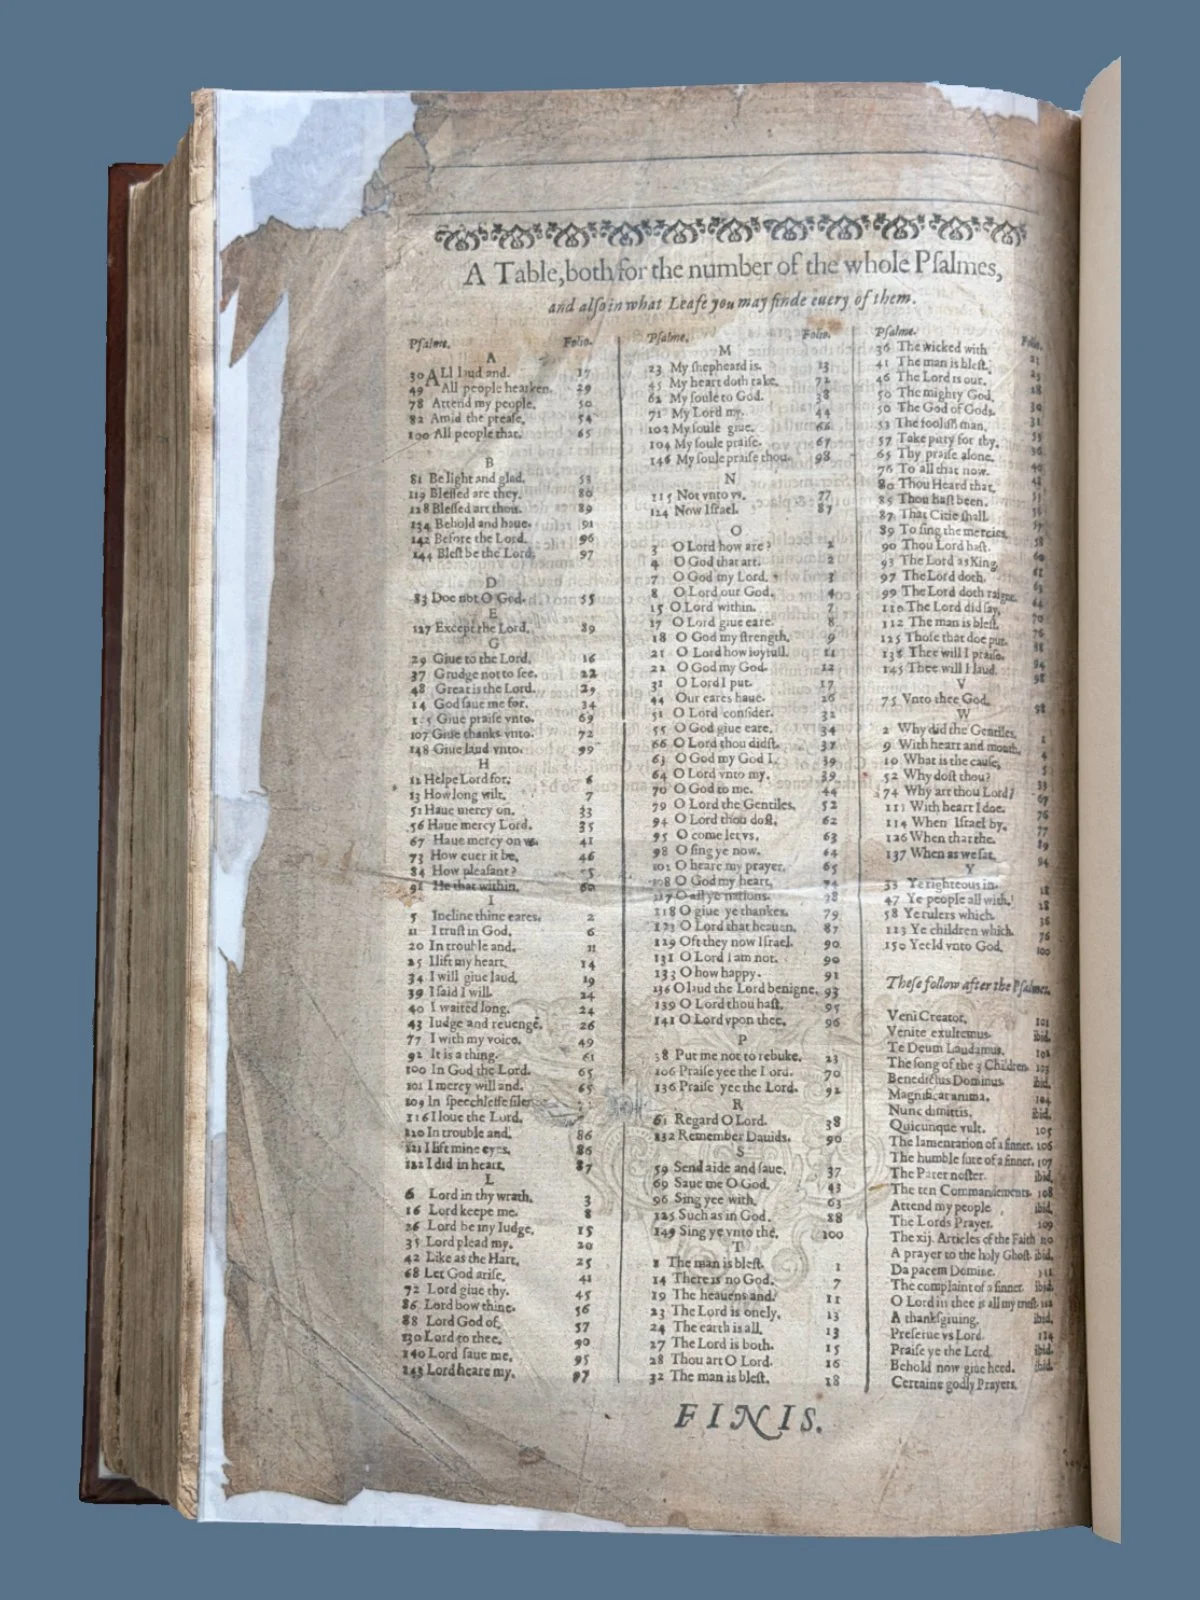 A Table, both for the number of the whole Pſalmes,
and alſo in what Leafe you may finde euery of them.
Pſalme. Folio.
A
30 ALl laud and. 17
49 All people hearken. 29
78 Attend my people. 50
82 Amid the preaſe. 54
100 All people that. 65
B
81 Be light and glad. 53
119 Bleſſed are they. 80
128 Bleſſed art thou. 89
134 Behold and haue. 91
142 Before the Lord. 96
144 Bleſt be the Lord. 97
D
83 Doe not O God. 55
E
127 Except the Lord. 89
G
29 Giue to the Lord. 16
37 Grudge not to ſee. 22
48 Great is the Lord. 29
14 God ſaue me for. 34
Giue praiſe vnto. 69
107 Giue thanks vnto. 72
148 Giue laud vnto. 99
H
12 Helpe Lord for. 6
13 How long wilt. 7
51 Haue mercy on. 33
56 Haue mercy Lord. 35
67 Haue mercy on vs. 41
73 How euer it be, 46
84 How pleaſant?
91 He that within. 60
I
5 Incline thine eares. 2
11 I truſt in God. 6
20 In trouble and. 11
25 I lift my heart. 14
34 I will giue laud. 19
39 I ſaid I will. 24
40 I waited long. 24
43 Iudge and reuenge. 26
77 I with my voice. 49
92 It is a thing. 61
100 In God the Lord. 65
101 I mercy will and. 65
109 In ſpeechleſſe ſilence
116 I loue the Lord.
120 In trouble and. 86
121 I lift mine eyes. 86
122 I did in heart. 87
L
6 Lord in thy wrath. 3
16 Lord keepe me. 8
26 Lord be my Iudge, 15
35 Lord plead my. 20
42 Like as the Hart. 25
68 Let God ariſe. 41
72 Lord giue thy. 45
86 Lord bow thine. 56
88 Lord God of. 57
130 Lord to thee. 90
140 Lord ſaue me. 95
143 Lord heare my. 97
Pſalme. Folio.
M
23 My ſhepheard is. 13
45 My heart doth take. 72
62 My ſoule to God. 38
71 My Lord my. 44
103 My ſoule giue. 66
104 My ſoule praiſe. 67
146 My ſoule praiſe thou. 98
N
115 Not vnto vs. 77
124 Now Iſrael. 87
O
3 O Lord how are? 2
4 O God that art. 2
7 O God my Lord. 3
8 O Lord our God. 4
15 O Lord within. 7
17 O Lord giue eare. 8
18 O God my ſtrength. 9
21 O Lord how ioyfull. 11
22 O God my God. 12
31 O Lord I put. 17
44 Our eares haue. 26
51 O Lord conſider. 32
55 O God giue eare. 34
66 O Lord thou didſt. 37
63 O God my God I. 39
64 O Lord vnto my. 39
70 O God to me. 44
79 O Lord the Gentiles. 52
94 O Lord thou doſt. 62
95 O come let vs. 63
98 O ſing ye now. 64
102 O heare my prayer. 65
108 O God my heart. 74
117 O all ye nations. 78
118 O giue ye thankes. 79
123 O Lord that heauen. 87
129 Oft they now Iſrael. 90
131 O Lord I am not. 90
133 O how happy. 91
136 O laud the Lord benigne. 93
139 O Lord thou haſt. 95
141 O Lord vpon thee. 96
P
38 Put me not to rebuke. 23
106 Praiſe yee the Lord. 70
136 Praiſe yee the Lord. 92
R
61 Regard O Lord. 38
132 Remember Dauids. 90
S
59 Send aide and ſaue. 37
69 Saue me O God. 43
96 Sing yee with. 63
125 Such as in God. 88
149 Sing ye vnto the. 100
T
1 The man is bleſt. 1
14 There is no God. 7
19 The heauens and. 11
23 The Lord is onely. 13
24 The earth is all. 13
27 The Lord is both. 15
28 Thou art O Lord. 16
32 The man is bleſt. 18
Pſalme. Folio.
36 The wicked with 21
41 The man is bleſt. 25
46 The Lord is our. 28
50 The mighty God. 30
50 The God of Gods. 31
53 The fooliſh man.
57 Take pitty for thy.
65 Thy praiſe alone.
76 To all that now.
80 Thou Heard that.
85 Thou haſt been.
87 That Citie ſhall.
89 To ſing the mercies.
90 Thou Lord haſt.
93 The Lord as King.
97 The Lord doth.
99 The Lord doth raigne.
110 The Lord did ſay.
112 The man is bleſt.
125 Thoſe that doe put.
138 Thee will I praiſe.
145 Thee will I laud.
V
75 Vnto thee God.
W
2 Why did the Gentiles. 1
9 With heart and mouth. 4
10 What is the cauſe. 5
52 Why doſt thou? 33
74 Why art thou Lord? 67
111 With heart I doe. 76
114 When Iſrael by. 77
126 When that the. 89
137 When as we ſat. 94
Y
33 Ye righteous in. 18
47 Ye people all with. 28
58 Ye rulers which. 36
113 Ye children which. 76
150 Yeeld vnto God. 100
Theſe follow after the Pſalmes.
Veni Creator. 101
Venite exultemus. ibid.
Te Deum Laudamus. 102
The ſong of the 3 Children. 103
Benedictus Dominus. ibid.
Magnificat anima. 104
Nunc dimittis. ibid.
Quicunque vult. 105
The lamentation of a ſinner. 106
The humble ſute of a ſinner. 107
The Pater noſter. ibid.
The ten Commandements 108
Attend my people ibid.
The Lords Prayer. 109
The xij. Articles of the Faith 110
A prayer to the holy Ghoſt. ibid.
Da pacem Domine. 111
The complaint of a ſinner. ibid.
O Lord in thee is all my truſt. 112
A thankſgiuing. ibid.
Preſerue vs Lord. 114
Praiſe ye the Lord. ibid.
Behold now giue heed. ibid.
Certaine godly Prayers.
FINIS.